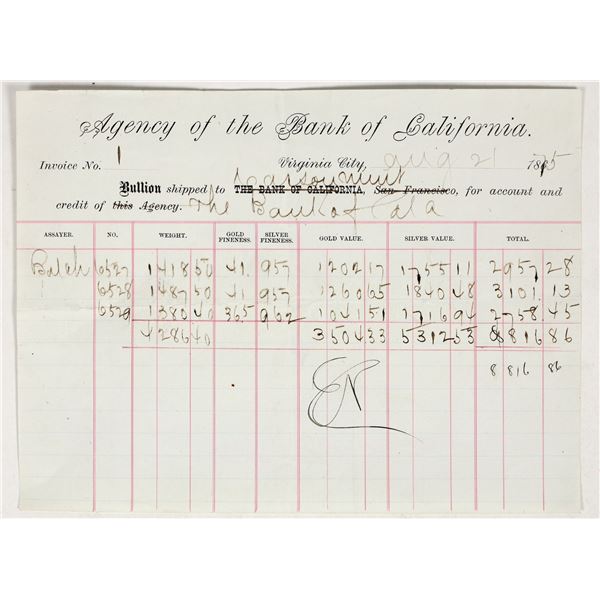 Agency of the Bank of California.
Invoice No. 1 Virginia City, Aug 21 1875
Carson Mint
Bullion shipped to THE BANK OF CALIFORNIA, San Francisco, for account and
credit of this Agency. The Bank of Cala
ASSAYER. NO. WEIGHT. GOLD FINENESS. SILVER FINENESS. GOLD VALUE. SILVER VALUE. TOTAL.
Balch 6527 1418 50 41. 957 1202 17 1755 11 2957 28
6528 1487 50 41 957 1260 65 1840 48 3101 13
6529 1380 40 36.5 962 1041 51 1716 94 2758 45
4286 40 3504 33 5312 53 8816 86
8 816 86